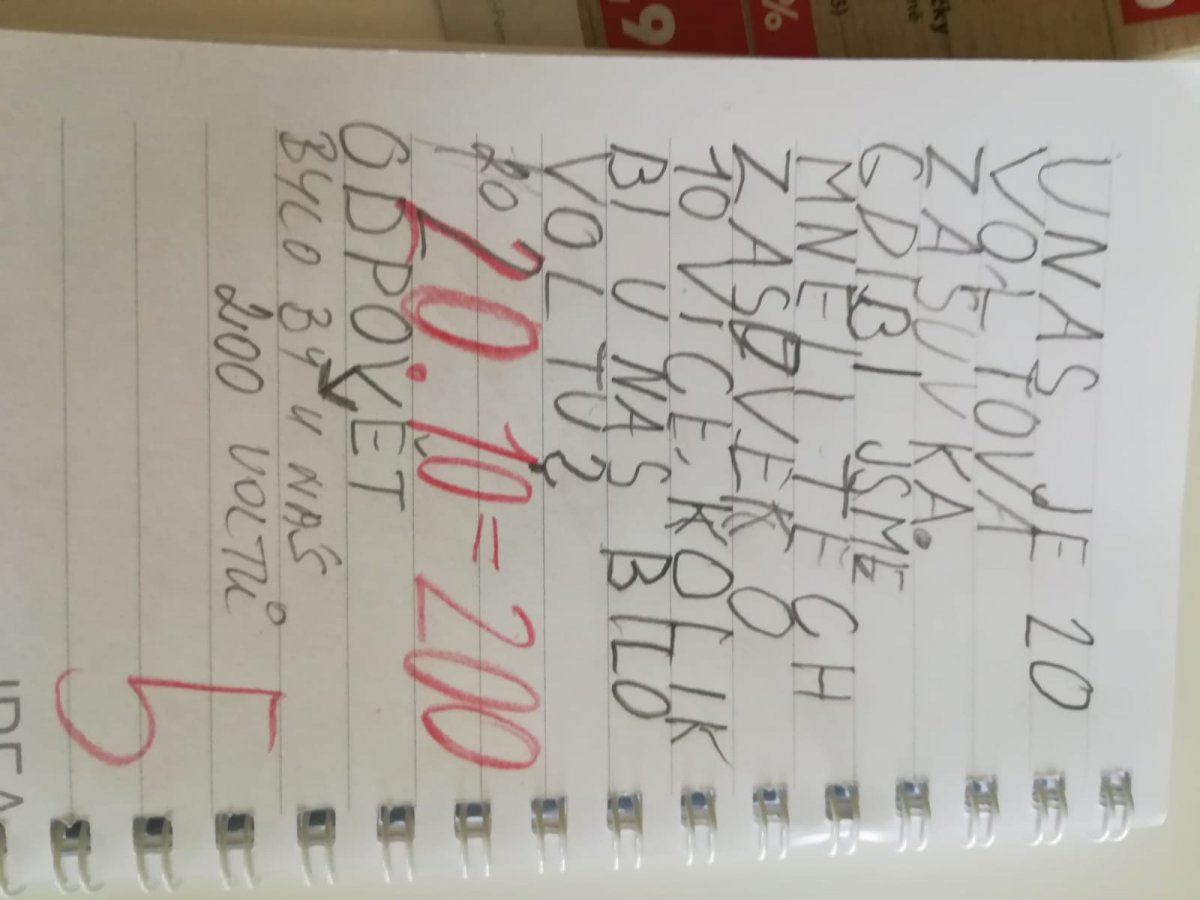 UNAS JE 20
VOLTOVÁ
ZASUVKA.
GDIBI JSME
MNELI TĚCH
ZASUVEK O
10 VÍCE, KOLIK
BI U NÁS BILO
VOLTŮ?
20
20 . 10 = 200
ODPOVĚT
BYLO BY U NÁS
200 VOLTŮ
5
9
%